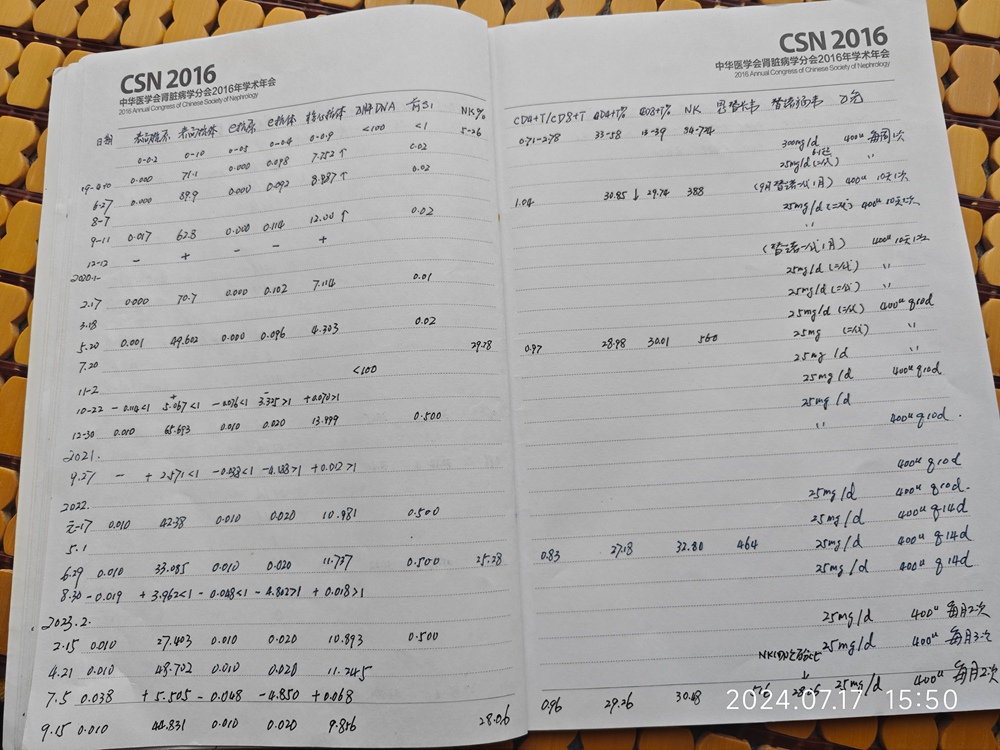 CSN 2016
中华医学会肾脏病学分会2016年学术年会
2016 Annual Congress of Chinese Society of Nephrology
日期 表面抗原 表面抗体 e抗原 e抗体 核心抗体 DNA 前S1 NK%
0-0.2 0-10 0-0.5 0-0.4 0-0.9 <100 <1 5-26
0.000 71.1 0.000 0.098 7.252↑ 0.02
6-27 0.000 89.9 0.000 0.092 8.887↑ 0.02
8-7
9-11 0.017 62.8 0.000 0.114 12.00↑ 0.02
12-12 - + - - +
2020.1-
2.17 0.000 70.7 0.000 0.102 7.114 0.01
3.18
5.20 0.001 49.602 0.000 0.096 4.303 0.02
7.20 29.78
11-2 <100
10-22 -0.114<1 +5.067<1 -0.076<1 3.325>1 +0.070>1
12-30 0.010 65.693 0.010 0.020 13.899 0.500
2021.
9.27 - +2.571<1 -0.033<1 -4.133>1 +0.012>1
2022.
元-17 0.010 42.38 0.010 0.020 10.981 0.500
5.1
6.29 0.010 33.085 0.010 0.020 11.737 0.500 25.28
8.30 -0.019 +3.962<1 -0.048<1 -4.802>1 +0.018>1
2023.2.
2.15 0.010 27.403 0.010 0.020 10.893 0.500
4.21 0.010 48.702 0.010 0.020 11.245
7.5 0.038 +5.505 -0.048 -4.850 +0.068
9.15 0.010 44.831 0.010 0.020 9.856 28.06
CSN 2016
中华医学会肾脏病学分会2016年学术年会
2016 Annual Congress of Chinese Society of Nephrology
CD4+T/CD8+T CD4+T% CD8+T% NK 恩替卡韦 替诺福韦
0.71-2.78 33-58 13-39 94-724
300mg/d 400u 每周1次
25mg/d (二代) "
1.04 30.85↓ 29.74 388 (9月替诺一代1月) 400u 10天1次
25mg/d (二代) 400u 10天1次
"
(替诺一代1月) 400u 10天1次
25mg/d (二代) "
25mg/d (二代) "
25mg/d (二代) 400u q10d
0.97 28.98 30.01 560 25mg (二代) "
25mg/d "
25mg/d 400u q10d
25mg/d
" 400u q10d.
400u q10d
25mg/d 400u q10d.
25mg/d 400u q14d
0.83 27.18 32.80 464 25mg/d 400u q14d
25mg/d 400u q14d
25mg/d 400u 每月2次
25mg/d 400u 每月3次
0.96 29.26 30.48 25mg/d 400u 每月2次
2024.07.17 15:50